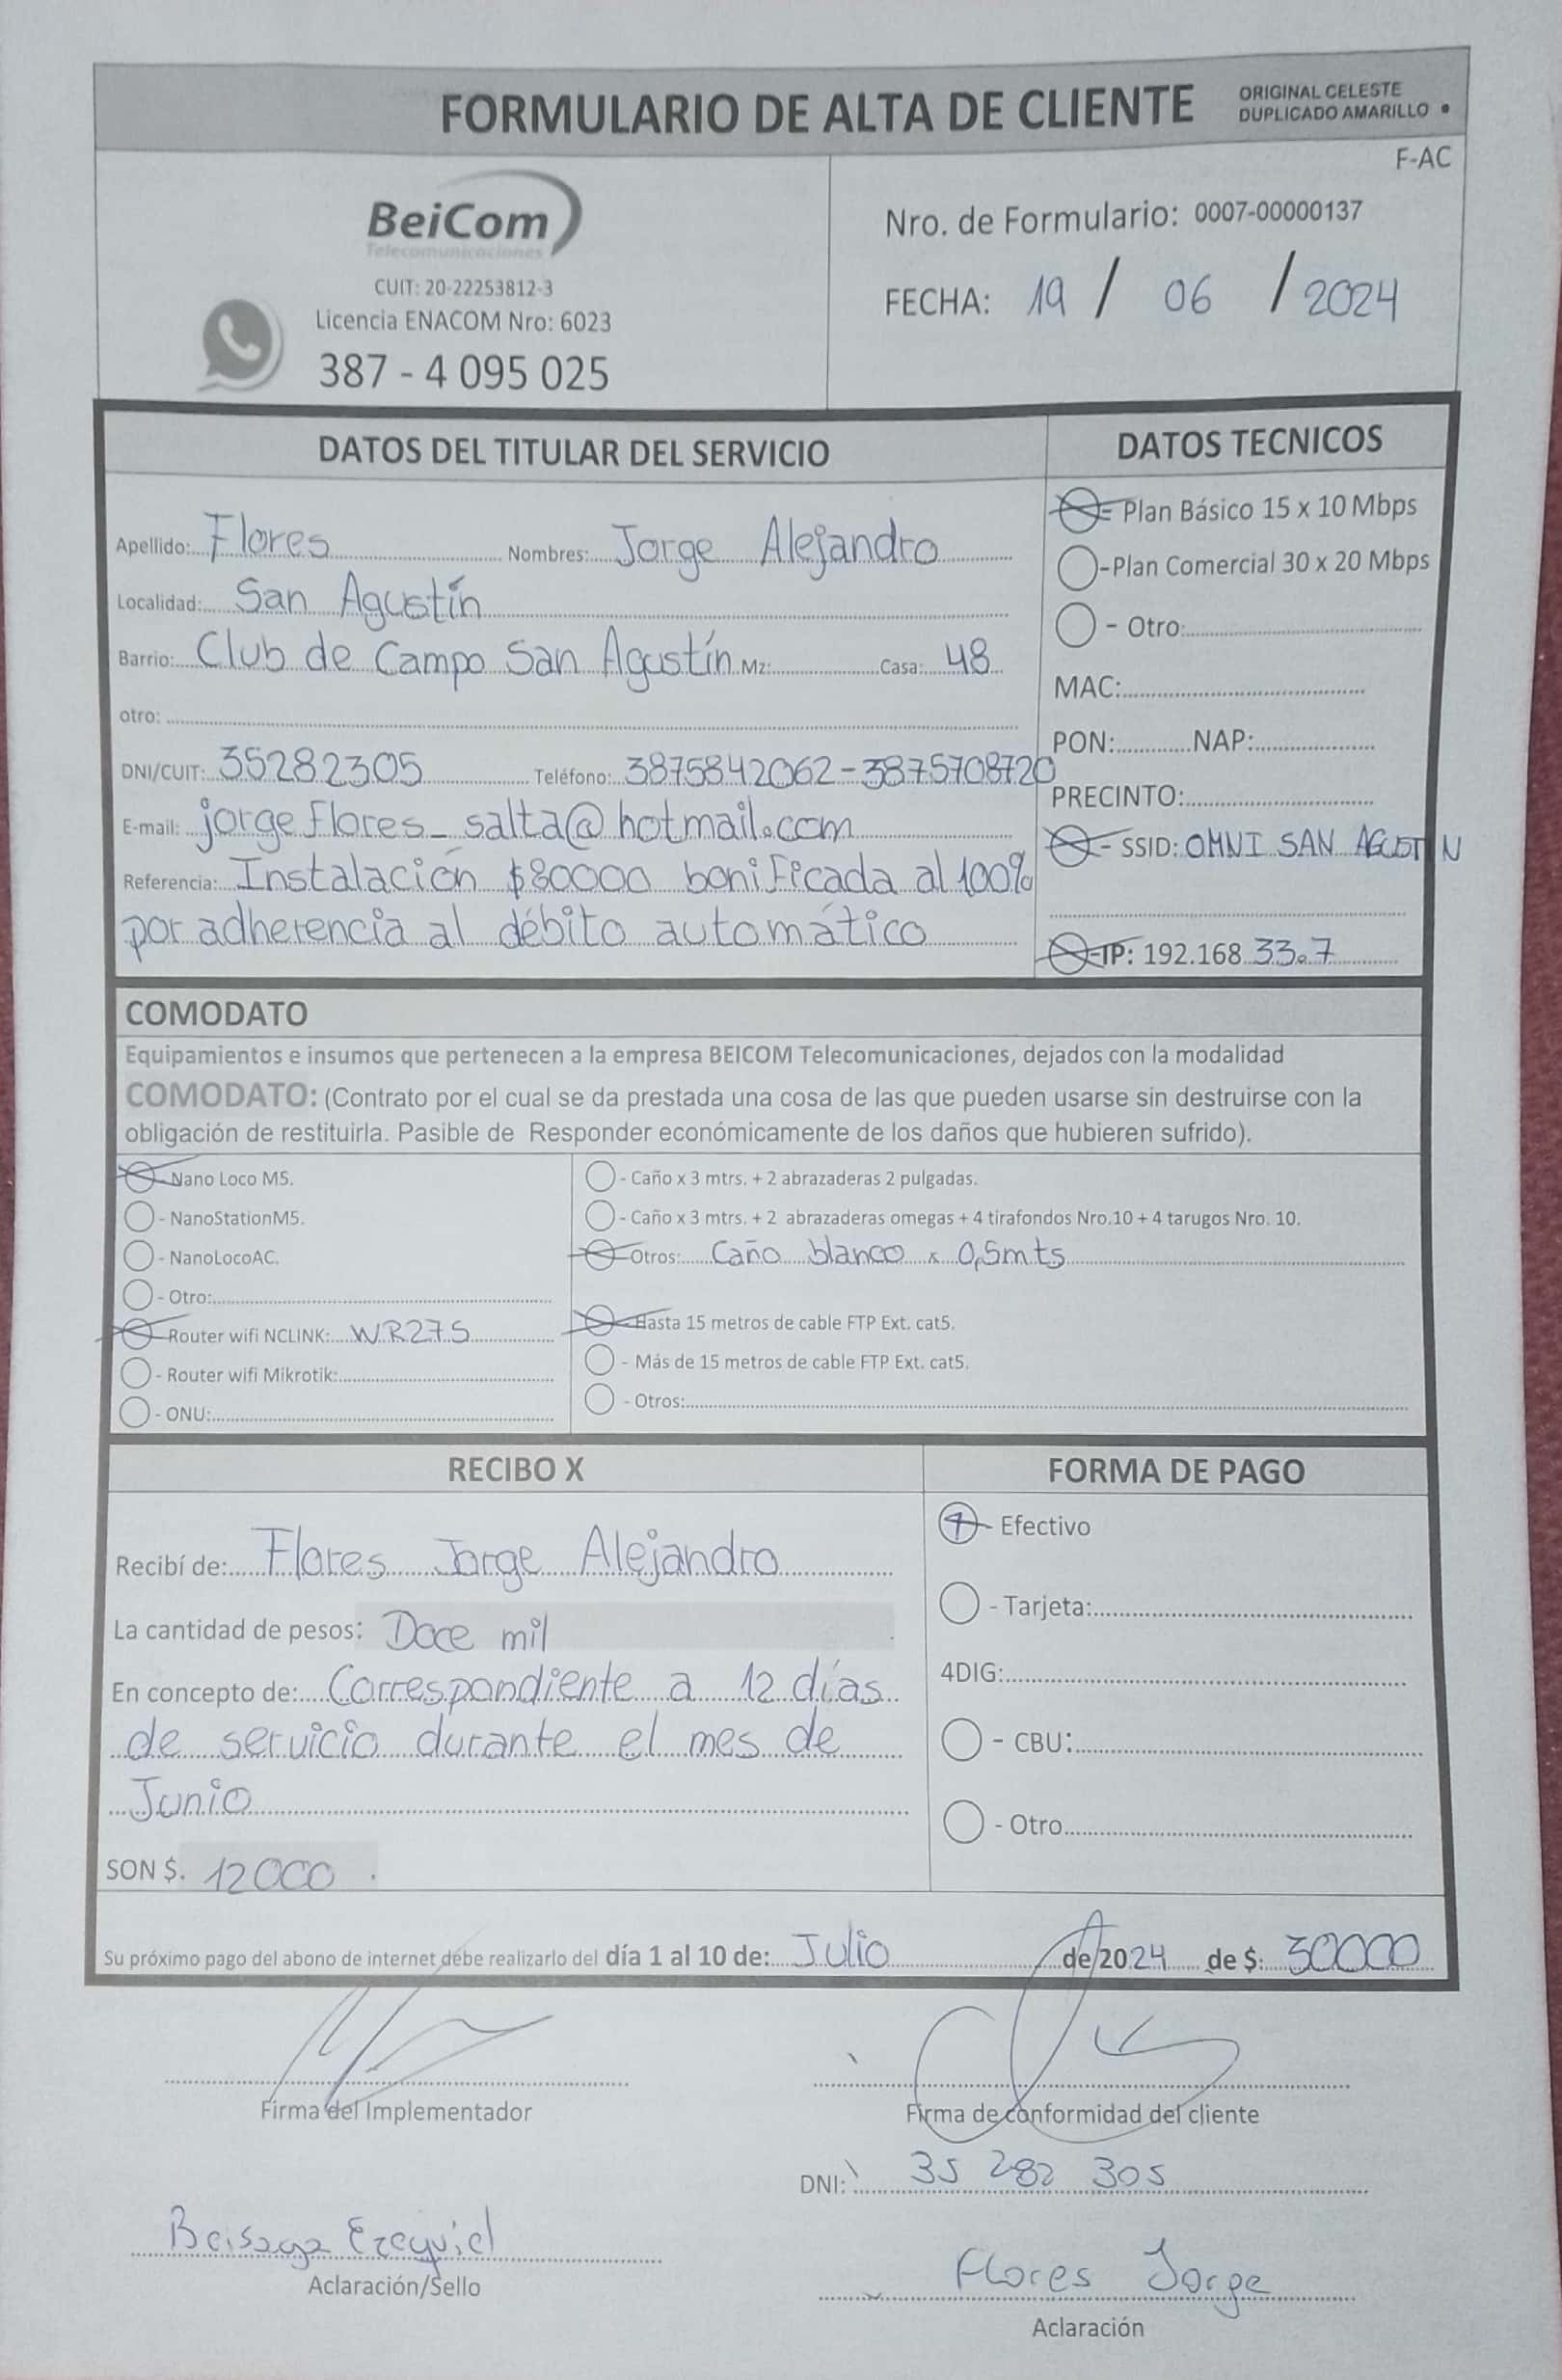 FORMULARIO DE ALTA DE CLIENTE
ORIGINAL CELESTE
DUPLICADO AMARILLO •
F-AC
BeiCom
Telecomunicaciones
CUIT: 20-22253812-3
Licencia ENACOM Nro: 6023
387 - 4 095 025
Nro. de Formulario: 0007-00000137
FECHA: 19 / 06 / 2024
DATOS DEL TITULAR DEL SERVICIO
Apellido: Flores Nombres: Jorge Alejandro
Localidad: San Agustín
Barrio: Club de Campo San Agustín Mz: Casa: 48
otro:
DNI/CUIT: 35282305 Teléfono: 3875842062-3875708720
E-mail: jorgeflores_salta@hotmail.com
Referencia: Instalación $80000 bonificada al 100%
por adherencia al débito automático
DATOS TECNICOS
- Plan Básico 15 x 10 Mbps
-Plan Comercial 30 x 20 Mbps
- Otro:
MAC:
PON: NAP:
PRECINTO:
- SSID: OMNI SAN AGUSTIN
-IP: 192.168 33.7
COMODATO
Equipamientos e insumos que pertenecen a la empresa BEICOM Telecomunicaciones, dejados con la modalidad
COMODATO: (Contrato por el cual se da prestada una cosa de las que pueden usarse sin destruirse con la
obligación de restituirla. Pasible de Responder económicamente de los daños que hubieren sufrido).
- Nano Loco M5.
- NanoStationM5.
- NanoLocoAC.
- Otro:
- Router wifi NCLINK: WR27S
- Router wifi Mikrotik:
- ONU:
- Caño x 3 mtrs. + 2 abrazaderas 2 pulgadas.
- Caño x 3 mtrs. + 2 abrazaderas omegas + 4 tirafondos Nro.10 + 4 tarugos Nro. 10.
- Otros: Caño blanco x 0,5mts
- Hasta 15 metros de cable FTP Ext. cat5.
- Más de 15 metros de cable FTP Ext. cat5.
- Otros:
RECIBO X
Recibí de: Flores Jorge Alejandro
La cantidad de pesos: Doce mil
En concepto de: Correspondiente a 12 días
de servicio durante el mes de
Junio
SON $. 12000
FORMA DE PAGO
- Efectivo
- Tarjeta:
4DIG:
- CBU:
- Otro
Su próximo pago del abono de internet debe realizarlo del día 1 al 10 de: Julio de 2024 de $: 30000
Firma del Implementador
Firma de conformidad del cliente
DNI: 35 282 305
Beisaga Ezequiel
Aclaración/Sello
Flores Jorge
Aclaración